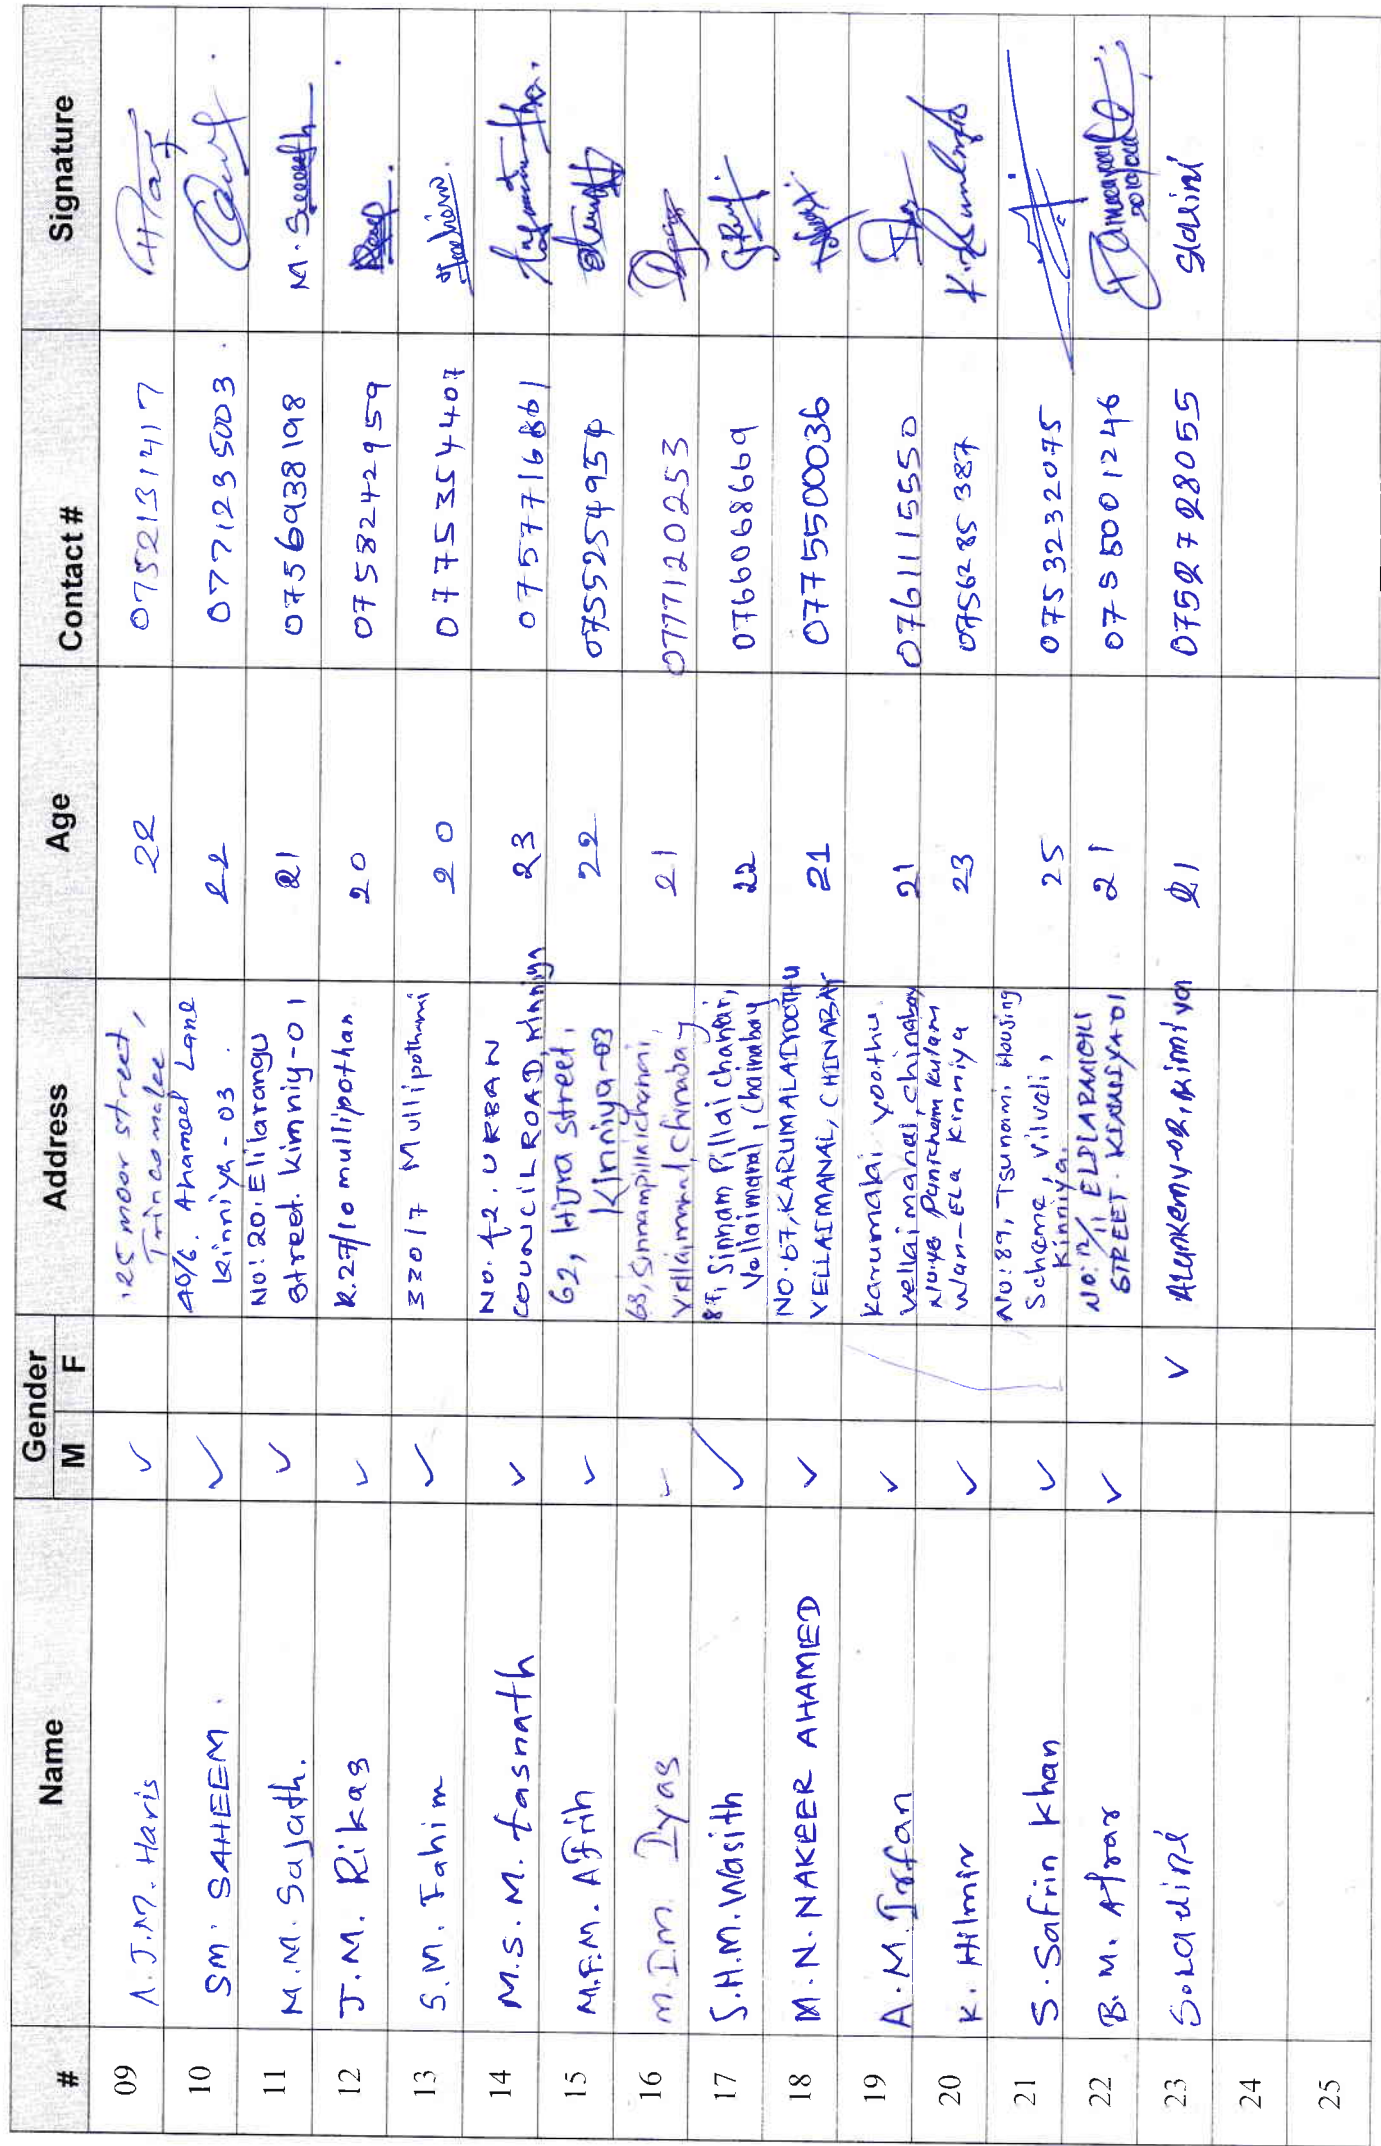 # Name Gender Address Age Contact # Signature
M F
09 A.J.M. Haris ✓ 125 moor street, Trincomalee 22 0752131417
10 SM. SAHEEM. ✓ 40/6. Ahamed Lane Kinniya-03. 22 0771235003.
11 M.M. Sajath. ✓ No: 20. Elilarangu Street. Kinniy-01 21 0756938198
12 J.M. Rikas ✓ R.27/10 mullipothan 20 0758242959
13 S.M. Fahim ✓ 330/7 Mullipothanai 20 0775354407
14 M.S.M. fasnath ✓ No. 42. URBAN COUNCIL ROAD, kinniya 23
15 M.F.M. Afrih ✓ 62, Hijra street, Kinniya-03 22 0755254954
16 M.I.M. Iyas ✓ 63, Sinnampillaichanai, Vellaimanal, chinabay 21 0777120253
17 S.H.M. Wasith ✓ 87, Sinnam Pillai chanai, Vellaimanal, Chainabay 22 0766068669
18 M.N. NAKEER AHAMED ✓ NO.67, KARUMALAIYOOTHU VELLAIMANAL, CHINABAY 21 0775500036
19 A.M. Irfan ✓ Karumalai yoothu vellaimanal, chinabay 21 0761115550
20 K. Hilmin ✓ Wan-Ela Kinniya 23 0756285387
21 S. Safrin khan ✓ NO: 89, Tsunami Housing Scheme, Vilveli, Kinniya. 25 0753232075
22 B.M. Afrar ✓ NO: 12/11 STREET. KINNIYA-01 21 0755001246
23 ✓ 21 0752728055 Slalini
24
25